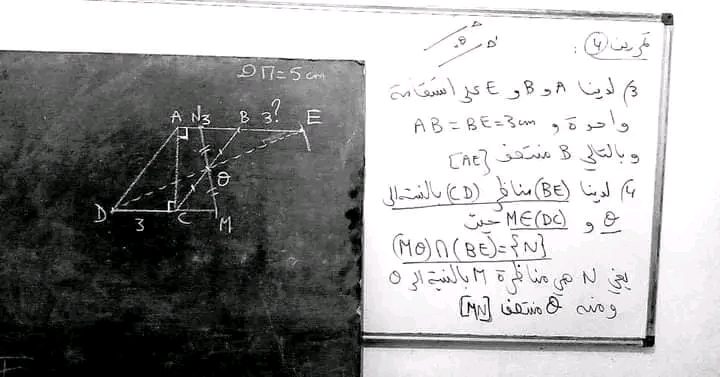 تمرين 4 :
Δ
θ
Δ'
3) لدينا A و B و E على استقامة
واحدة و AB = BE = 3cm
وبالتالي B منتصف [AE]
4) لدينا (BE) مناظر (CD) بالنسبة الى
θ و M∈(DC) حيث
(Mθ)∩(BE)={N}
يعني N هي مناظرة M بالنسبة الى θ
ومنه θ منتصف [MN]
DM = 5 cm
A N 3 B 3? E
θ
D 3 C M